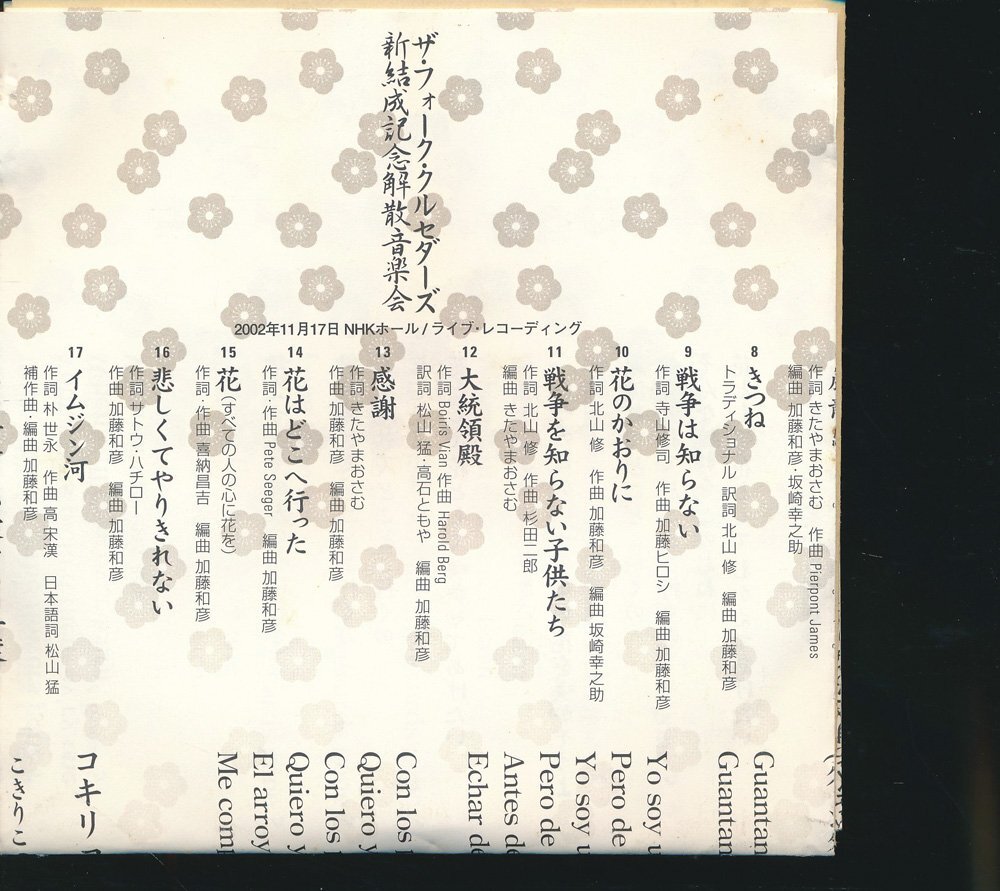 ザ・フォーク・クルセダーズ
新結成記念解散音楽会
2002年11月17日 NHKホール / ライブ・レコーディング
作詞 きたやまおさむ 作曲 Pierpont James
編曲 加藤和彦・坂崎幸之助
8 きつね
トラディショナル 訳詞 北山 修 編曲 加藤和彦
9 戦争は知らない
作詞 寺山修司 作曲 加藤ヒロシ 編曲 加藤和彦
10 花のかおりに
作詞 北山 修 作曲 加藤和彦 編曲 坂崎幸之助
11 戦争を知らない子供たち
作詞 北山 修 作曲 杉田二郎
編曲 きたやまおさむ
12 大統領殿
作詞 Boiris Vian 作曲 Harold Berg
訳詞 松山 猛・高石ともや 編曲 加藤和彦
13 感謝
作詞 きたやまおさむ
作曲 加藤和彦 編曲 加藤和彦
14 花はどこへ行った
作詞・作曲 Pete Seeger 編曲 加藤和彦
15 花(すべての人の心に花を)
作詞・作曲 喜納昌吉 編曲 加藤和彦
16 悲しくてやりきれない
作詞 サトウ・ハチロー
作曲 加藤和彦 編曲 加藤和彦
17 イムジン河
作詞 朴 世永 作曲 高 宋漢 日本語詞 松山 猛
補作曲・編曲 加藤和彦
Guantan
Guantan
Yo soy u
Pero de
Yo soy u
Pero de
Antes d
Echar de
Con los
Quiero y
Con los
Quiero y
El arroy
Me com
コキリ
こきりこ